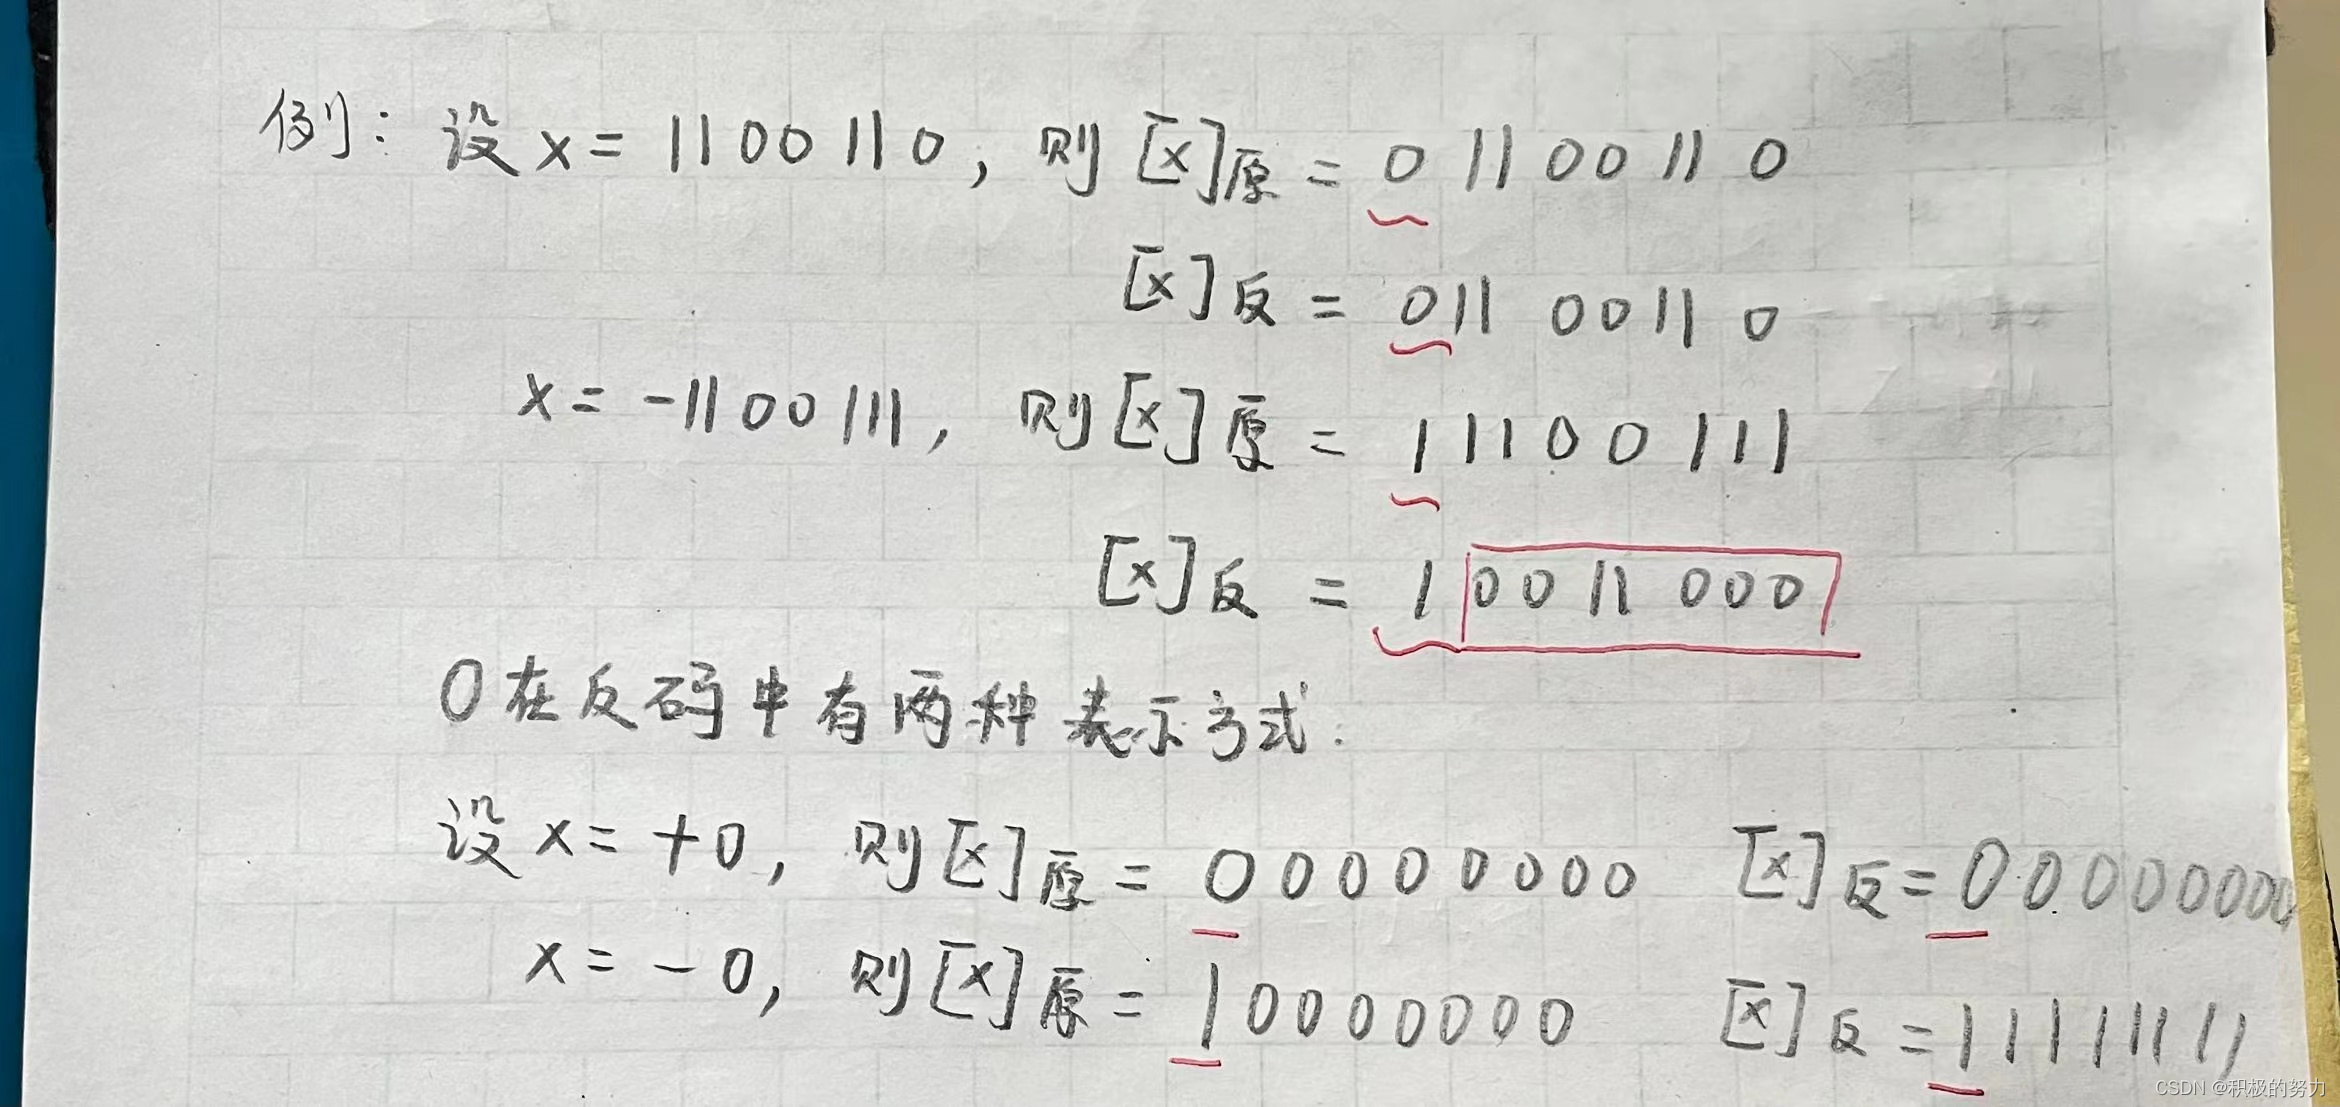 例：设 x = 1100110，则 [x]原 = 01100110
[x]反 = 01100110
x = -1100111，则 [x]原 = 11100111
[x]反 = 10011000
0在反码中有两种表示方式：
设 x = +0，则 [x]原 = 00000000 [x]反 = 00000000
x = -0，则 [x]原 = 10000000 [x]反 = 11111111
CSDN @积极的努力